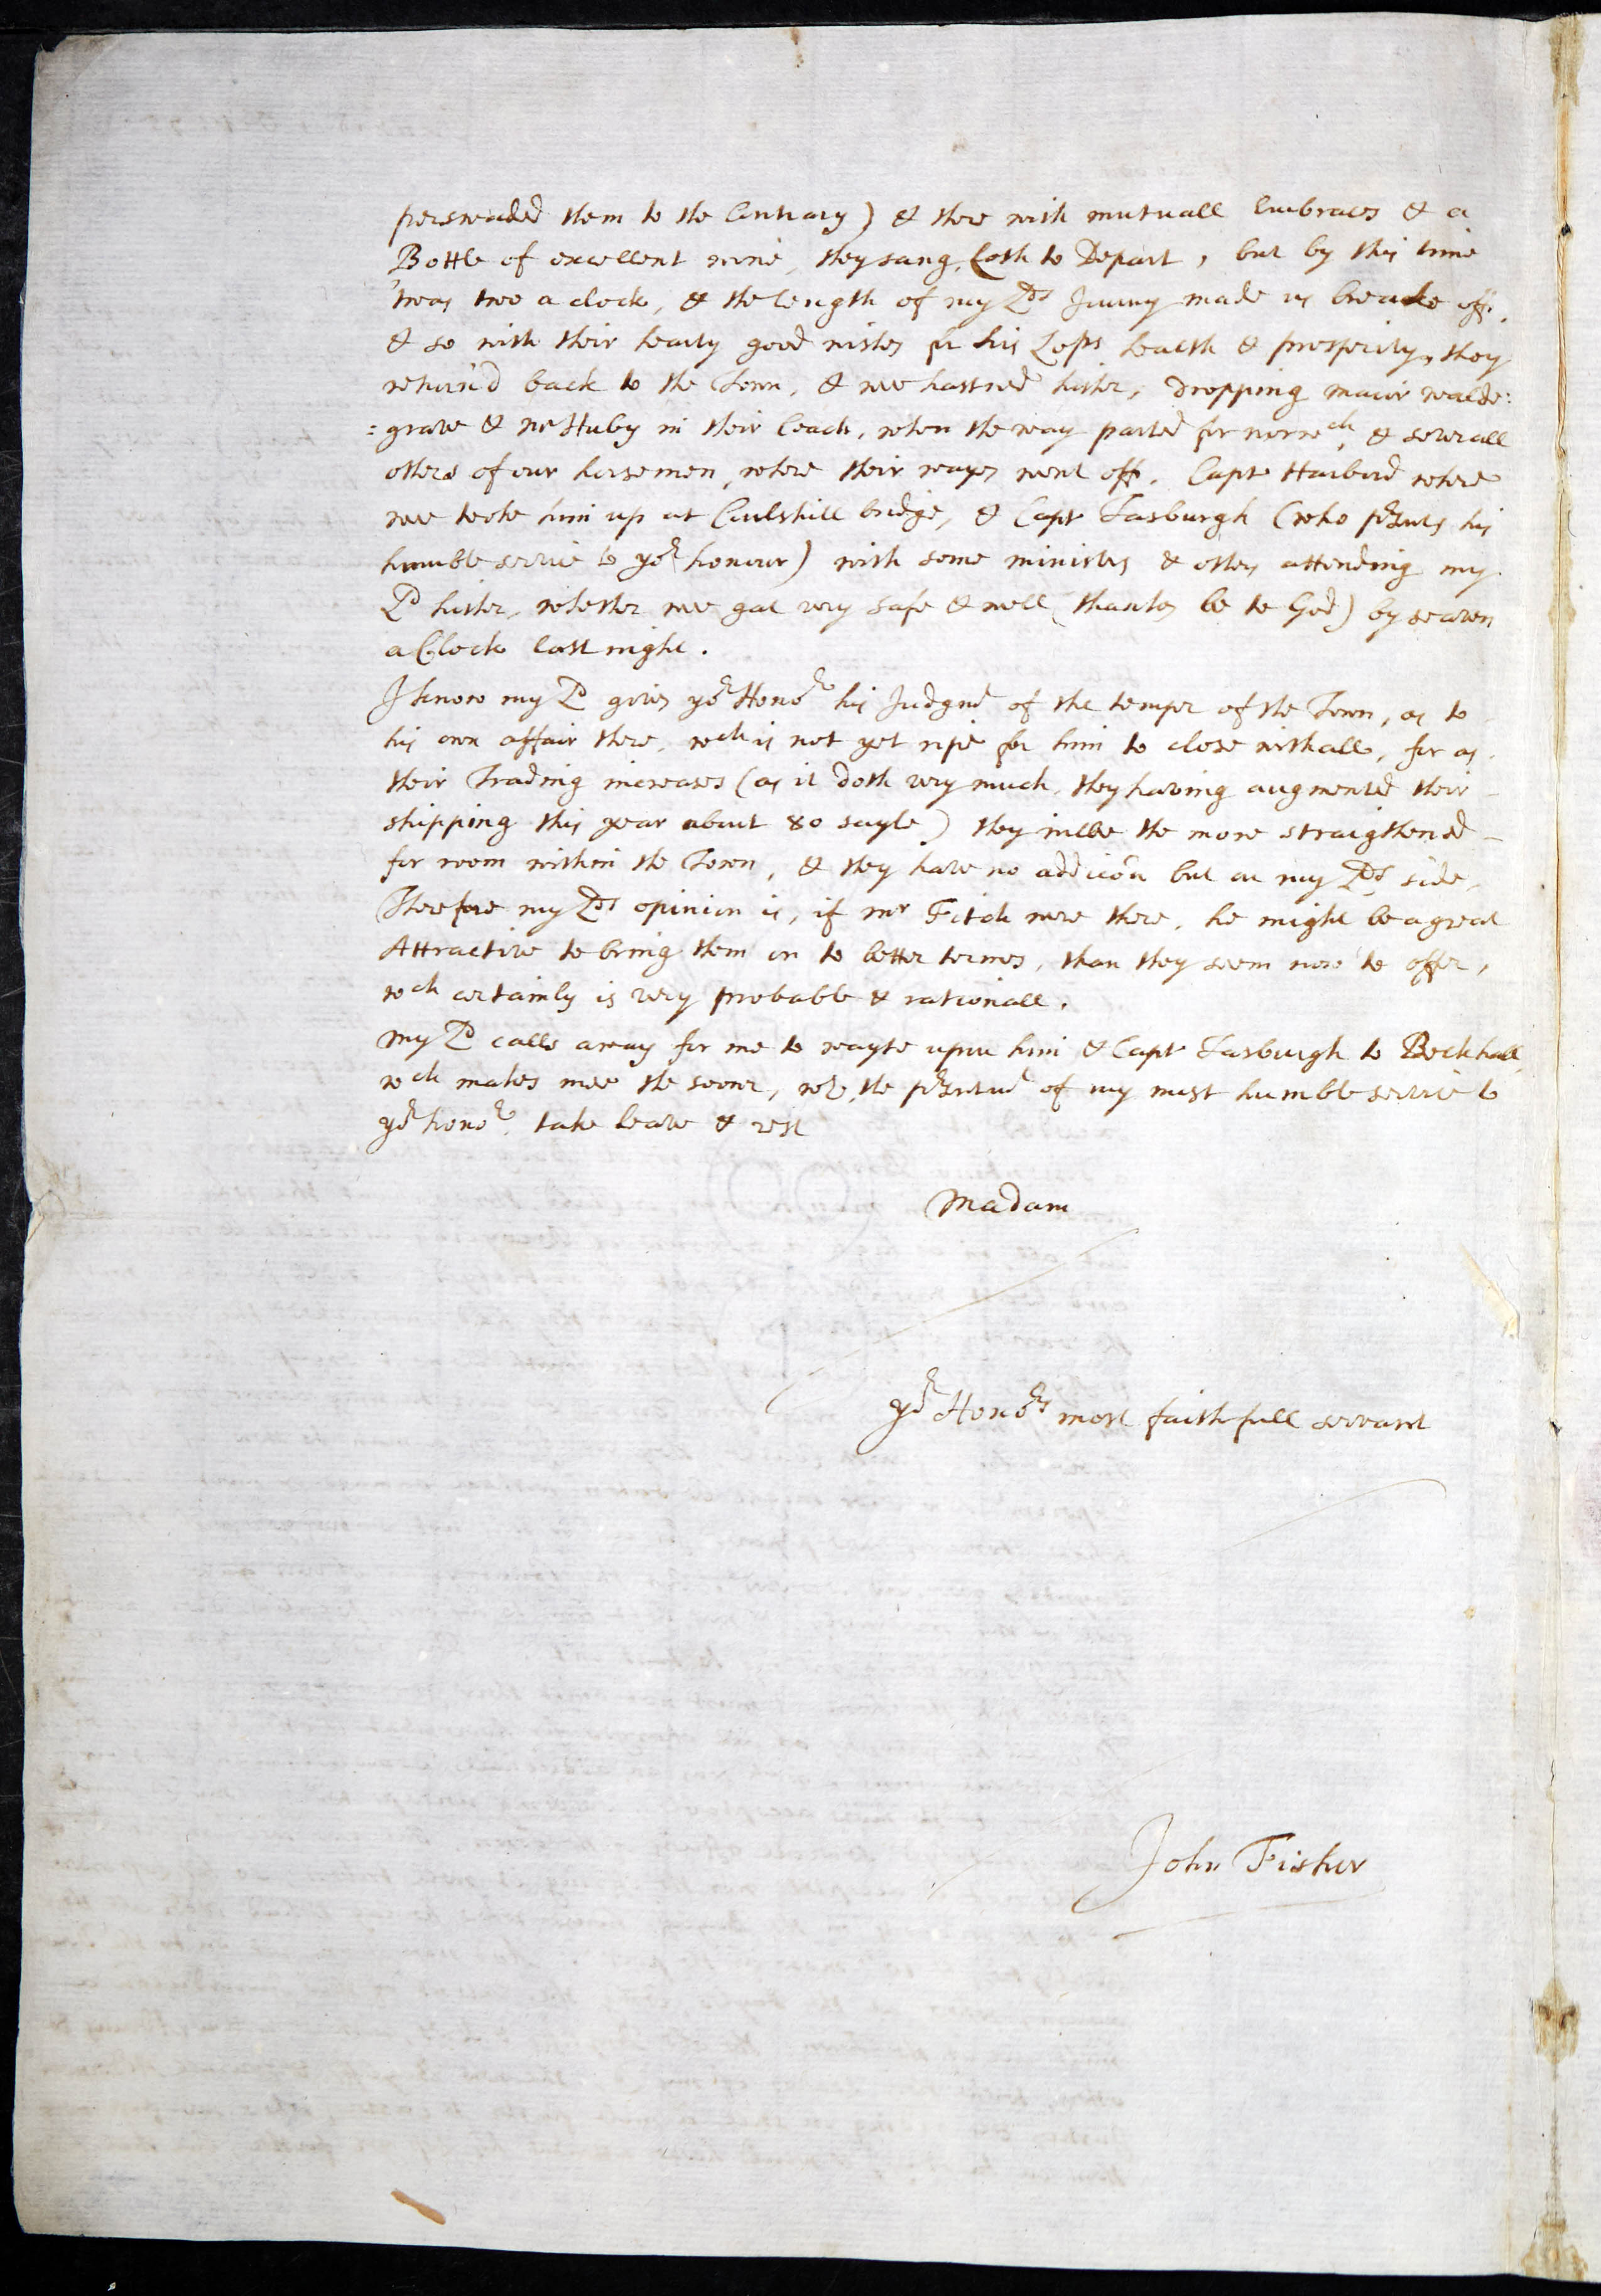 perswaded them to the Contrary) & there with mutuall Embraces & a
Bottle of excellent wine, they sang, Loth to Depart, but by this time
'twas two a clock, & the length of my Lds Journy made us breake off,
& so with their hearty good wishes for his Lops health & prosperity, they
return'd back to the Town, & wee hastned hither, dropping maior Walde:
=grave & mr Huby in their Coach, when the way parted for norwch, & severall
others of our horsemen, where their wayes went off. Capt Harbord where
wee tooke him up at Coulshill bridge, & Capt Tasburgh (who prsents his
humble service to yor honour) with some ministers & others attending my
Ld hither, whether wee gat very safe & well (thankes be to God) by seaven
a Clock last night.
I know my Ld gives yor Honor his Judgmt of the temper of the Town, as to
his own affair there, wch is not yet ripe for him to close withall, for as
their Trading increases (as it doth very much, they having augmented their
shipping this year about 80 sayle) they willbe the more straightened
for room within the Town, & they have no addicõn but on my Lds side,
Therefore my Lds opinion is, if mr Fitch were there, he might be a great
Attractive to bring them on to better termes, than they seem now to offer,
wch certainly is very probable & rationall.
My Ld calls away for me to wayte upon him & Capt Tasburgh to Beckhall,
wch makes mee the sooner, wth the prsentmt of my most humble service to
yor honor take leave & rest
Madam
yor Honors most faithfull servant
John Fisher